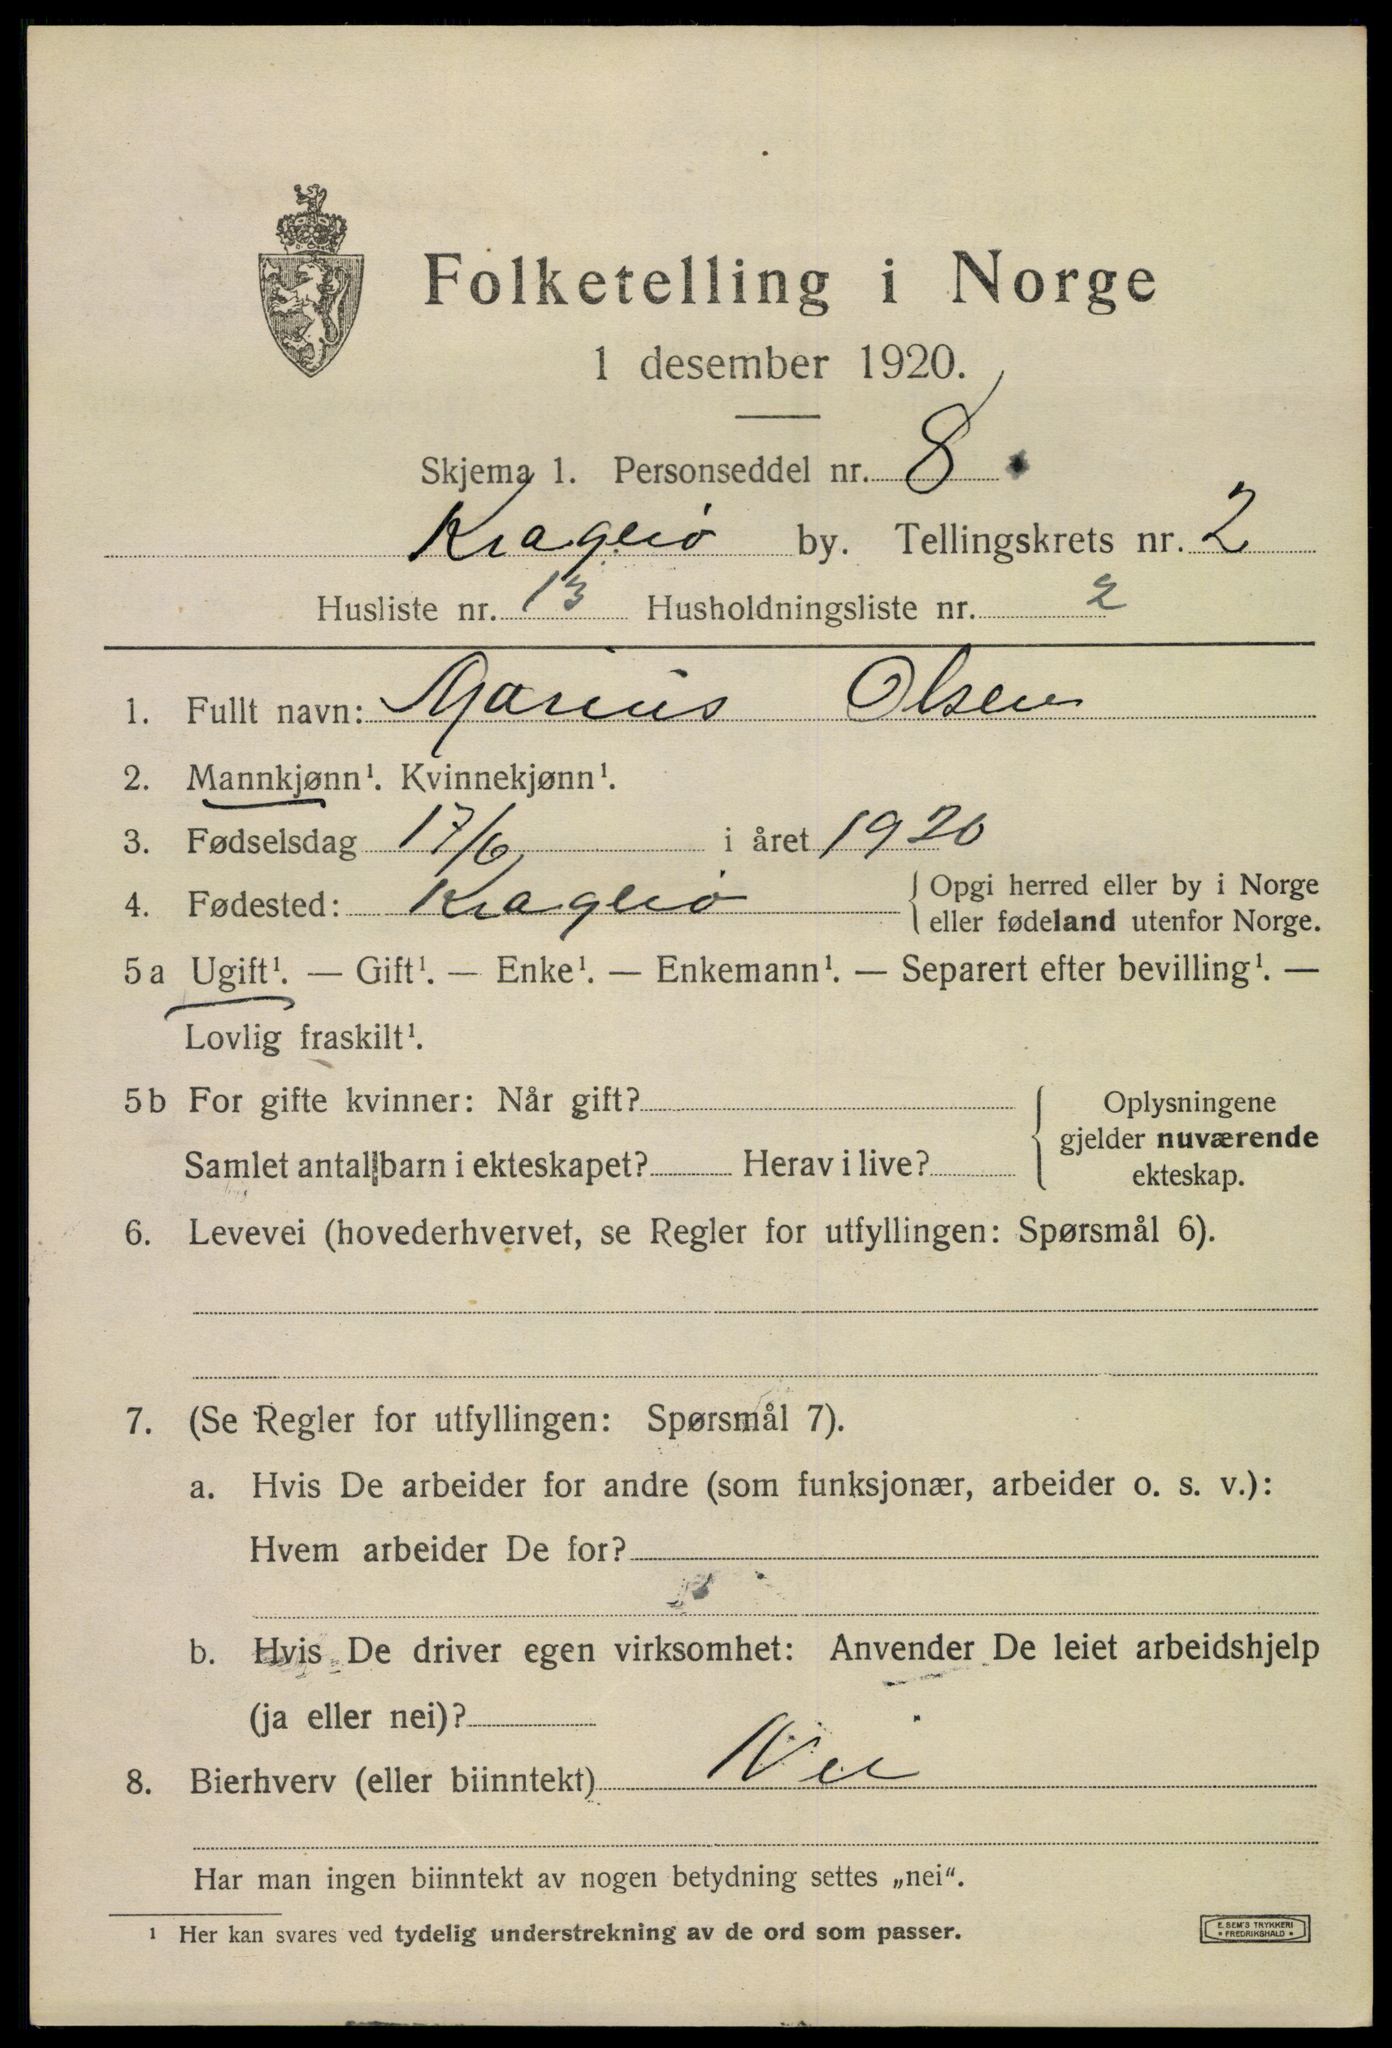 Folketelling i Norge
1 desember 1920.
Skjema 1. Personseddel nr. 8
Kragerø by. Tellingskrets nr. 2
Husliste nr. 13 Husholdningsliste nr. 2
1. Fullt navn: Marius Olsen
2. Mannkjønn¹. Kvinnekjønn¹.
3. Fødselsdag 17/6 i året 1920
4. Fødested: Kragerø { Opgi herred eller by i Norge
eller fødeland utenfor Norge.
5a Ugift¹. — Gift¹. — Enke¹. — Enkemann¹. — Separert efter bevilling¹. —
Lovlig fraskilt¹.
5b For gifte kvinner: Når gift? { Oplysningene
gjelder nuværende
ekteskap.
Samlet antal barn i ekteskapet? Herav i live?
6. Levevei (hovederhvervet, se Regler for utfyllingen: Spørsmål 6).
7. (Se Regler for utfyllingen: Spørsmål 7).
a. Hvis De arbeider for andre (som funksjonær, arbeider o. s. v.):
Hvem arbeider De for?
b. Hvis De driver egen virksomhet: Anvender De leiet arbeidshjelp
(ja eller nei)?
8. Bierhverv (eller biinntekt) Nei
Har man ingen biinntekt av nogen betydning settes „nei“.
¹ Her kan svares ved tydelig understrekning av de ord som passer.
E. SEM'S TRYKKERI
• FREDRIKSHALD •